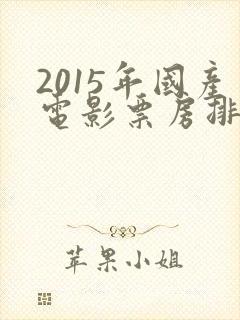 2015年國產
電影票房排
苹果小姐